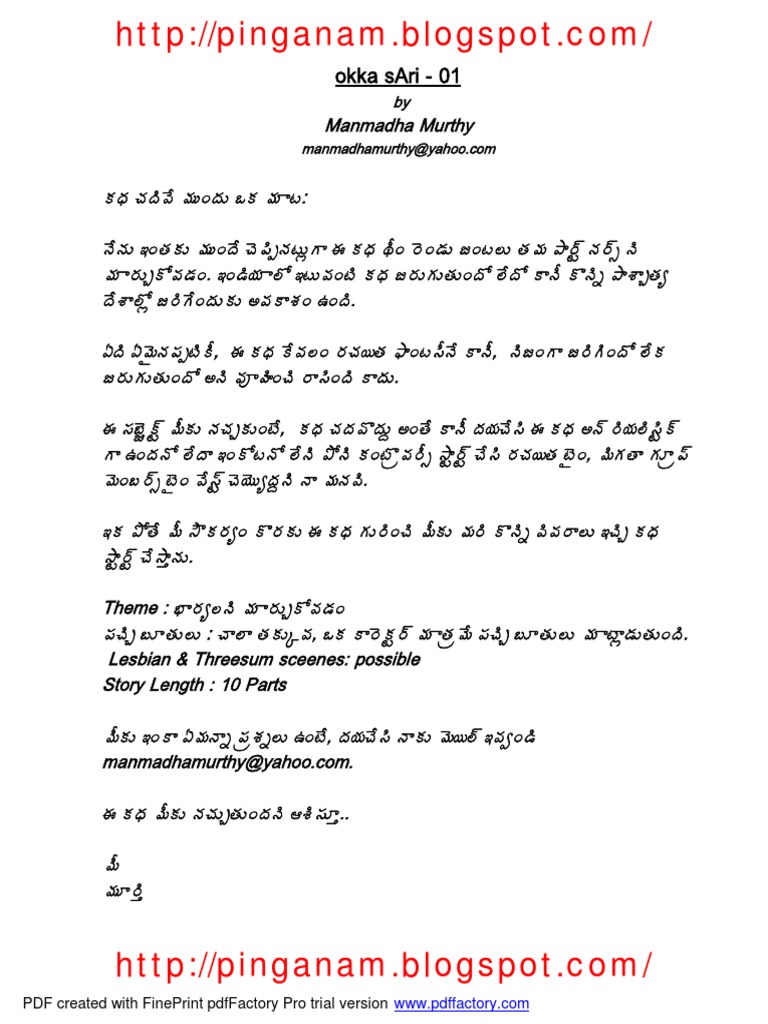 http://pinganam.blogspot.com/
okka sAri - 01
by
Manmadha Murthy
manmadhamurthy@yahoo.com
కధ చదివే ముందు ఒక మాట:
నేను ఇంతకు ముందే చెప్పినట్లుగా ఈ కధ థీం రెండు జంటలు తమ పార్ట్ నర్స్ ని
మార్చుకోవడం. ఇండియాలో ఇటువంటి కధ జరుగుతుందో లేదో కానీ కొన్ని పాశ్చాత్య
దేశాల్లో జరిగేందుకు అవకాశం ఉంది.
ఏది ఏమైనప్పటికీ, ఈ కధ కేవలం రచయిత ఫాంటసీనే కానీ, నిజంగా జరిగిందో లేక
జరుగుతుందో అని వూహించి రాసింది కాదు.
ఈ సబ్జెక్ట్ మీకు నచ్చకుంటే, కధ చదవొద్దు అంతే కానీ దయచేసి ఈ కధ అన్ రియలిస్టిక్
గా ఉందనో లేదా ఇంకోటనో లేని పోని కంట్రొవర్సీ స్టార్ట్ చేసి రచయిత టైం, మిగతా గ్రూప్
మెంబర్స్ టైం వేస్ట్ చెయ్యొద్దని నా మనవి.
ఇక పోతే మీ సౌకర్యం కొరకు ఈ కధ గురించి మీకు మరి కొన్ని వివరాలు ఇచ్చి కధ
స్టార్ట్ చేస్తాను.
Theme : భార్యలని మార్చుకోవడం
పచ్చి బూతులు : చాలా తక్కువ, ఒక కారెక్టర్ మాత్రమే పచ్చి బూతులు మాట్లాడుతుంది.
Lesbian & Threesum sceenes: possible
Story Length : 10 Parts
మీకు ఇంకా ఏమన్నా ప్రశ్నలు ఉంటే, దయచేసి నాకు మెయిల్ ఇవ్వండి
manmadhamurthy@yahoo.com.
ఈ కధ మీకు నచ్చుతుందని ఆశిస్తూ..
మీ
మూర్తి
http://pinganam.blogspot.com/
PDF created with FinePrint pdfFactory Pro trial version www.pdffactory.com